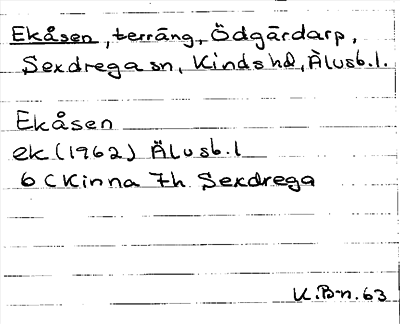 Ekåsen, terräng, Ödgärdarp,
Sexdrega sn, Kinds hd, Älvsb. l.
Ekåsen
ek (1962) Älvsb. l
6 C Kinna 7h Sexdrega
K. B-n. 63